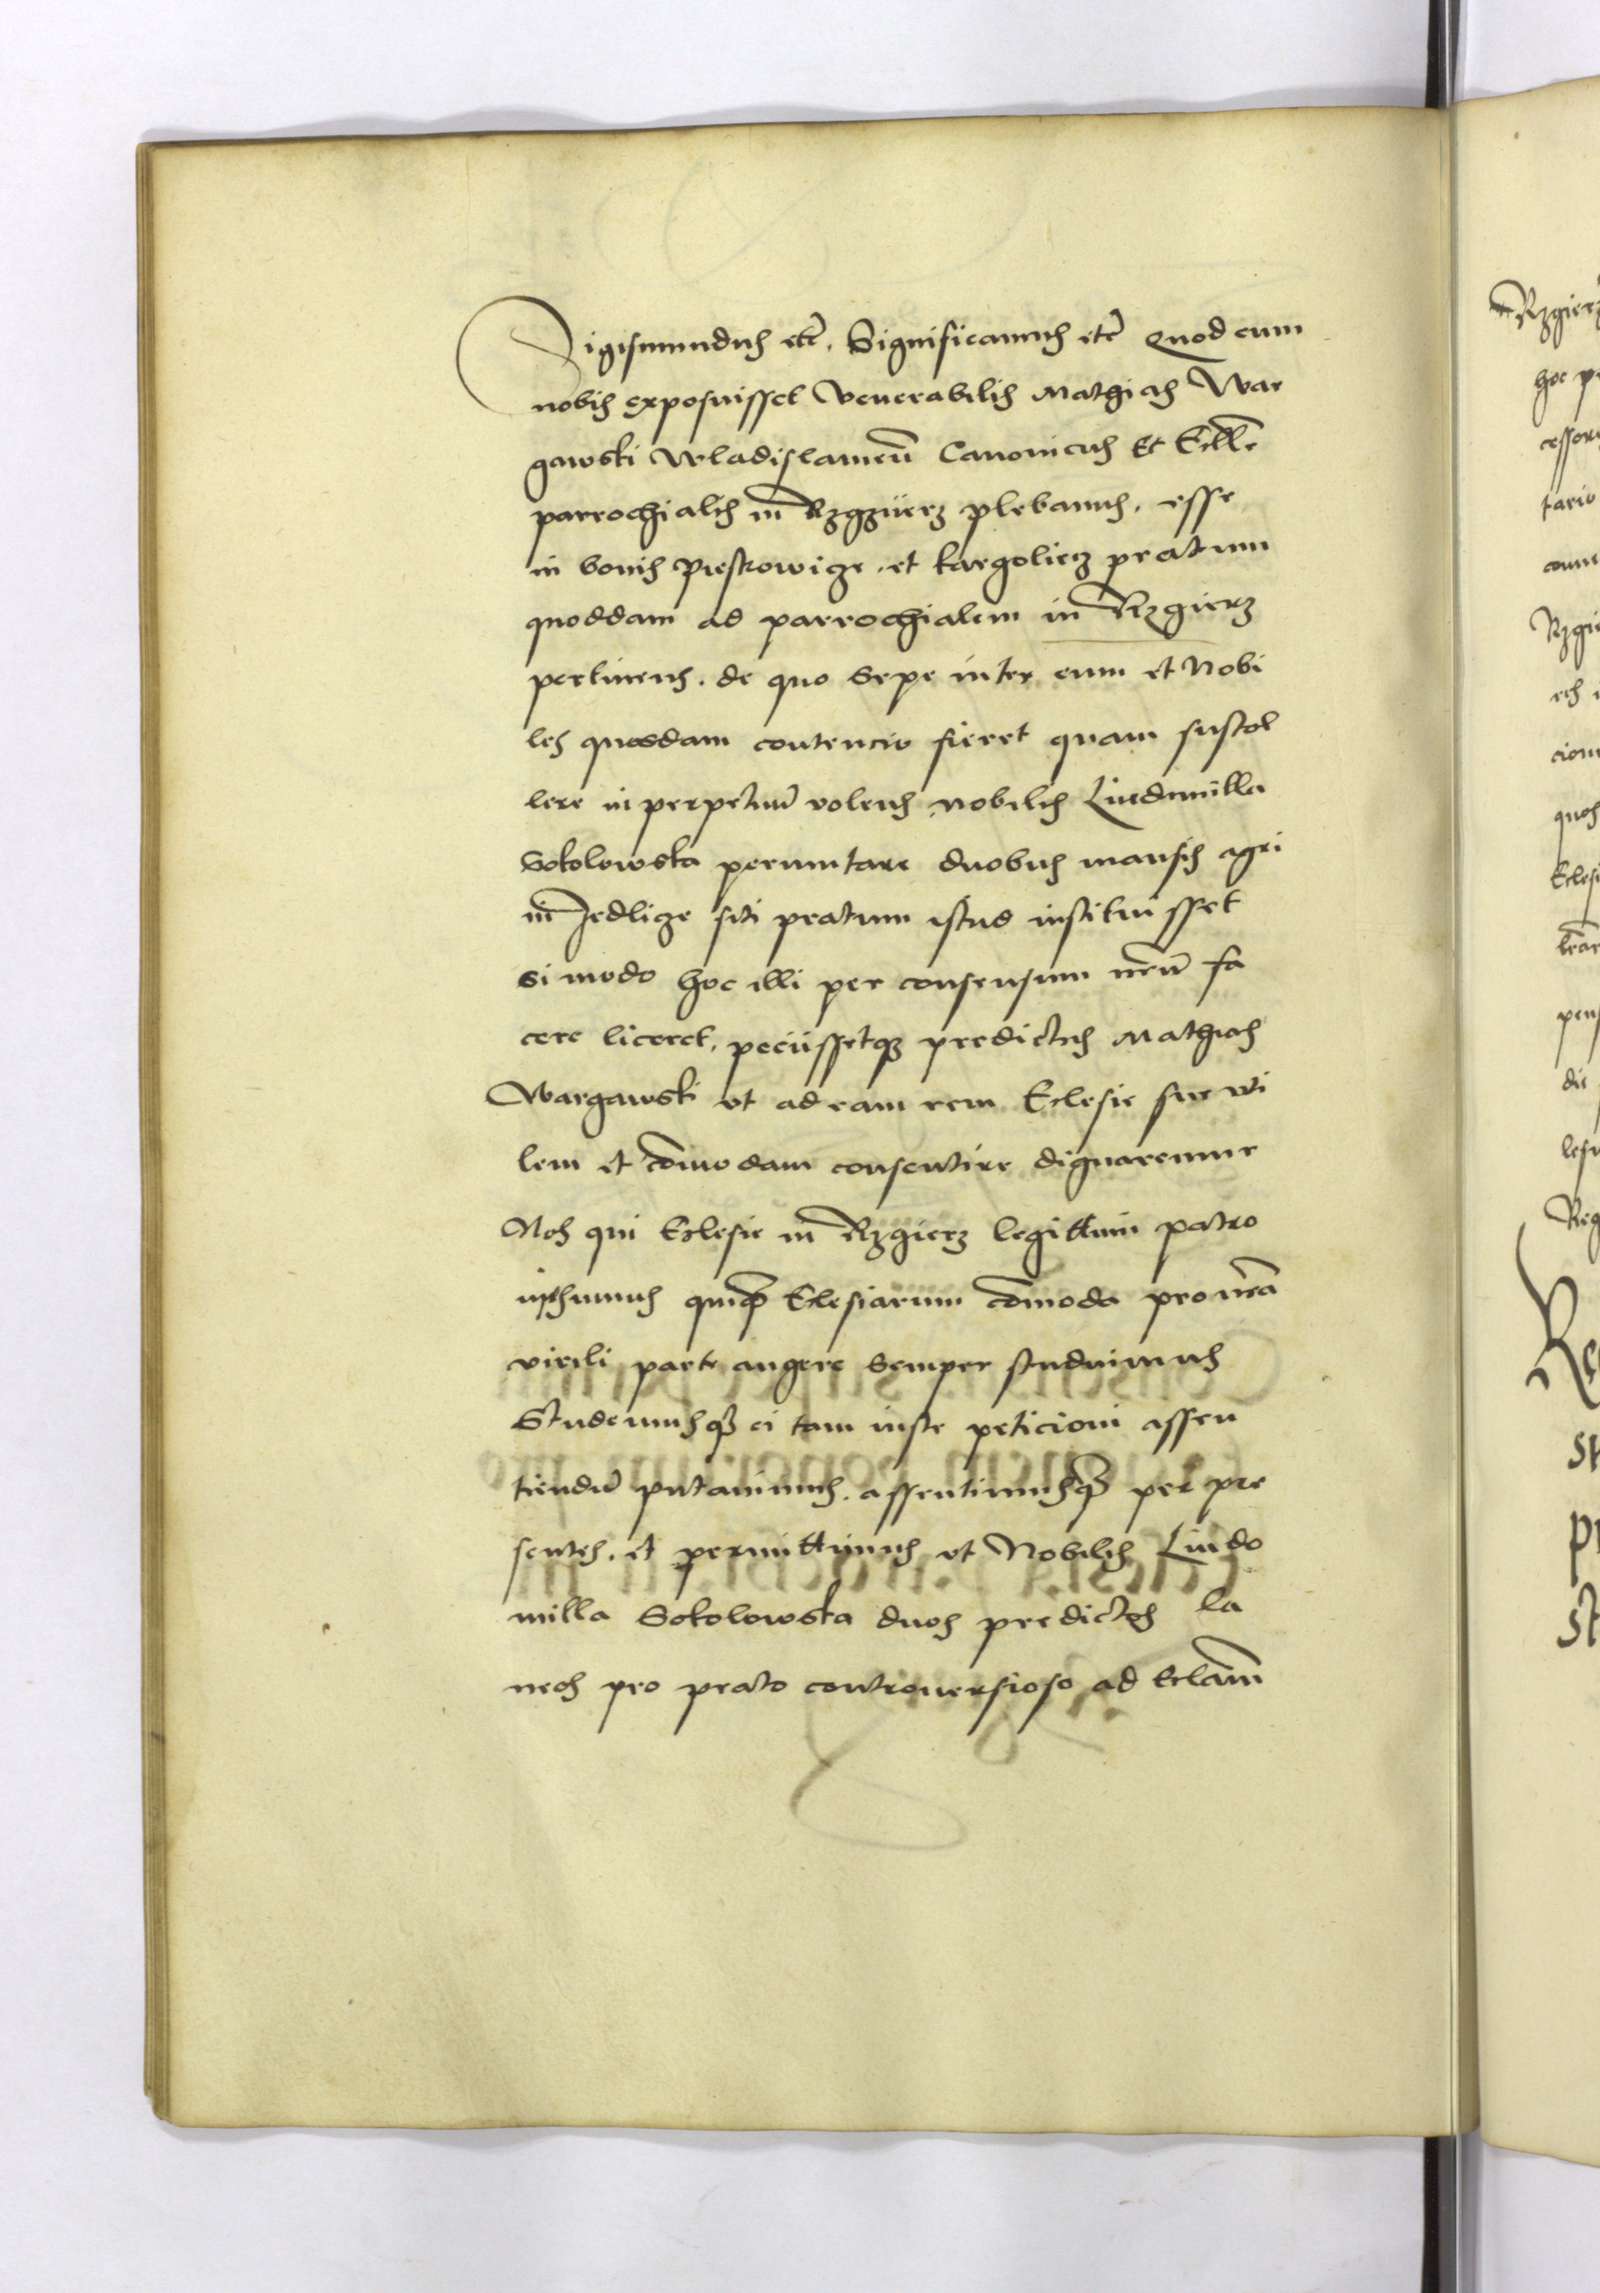 Sigismundus etc̃. Significamus etc̃ Quod cum
nobis exposuisset Venerabilis Mathias War
gawski Wladislauieñ Canonicus Et Eccl̃e
parrochialis in Rzgzierz plebanus, esse
in bonis Pieskowicze et Kargoliecz pratum
quoddam ad parrochialem in Rzgierz
pertinens. de quo sepe inter eum et Nobi
les quosdam contencio fieret quam sustol
lere in perpetuũ volens nobilis Liudmilla
Sokolowska permutare duobus mansis agri
in Jedlicze siti pratum istud instituisset
si modo hoc illi per consensum nr̃ũ fa
cere liceret, peciissetq3 predictus Mathias
Wargawski vt ad eam rem Eclesie sue vti
lem et com̃odam consentire dignaremur
Nos qui Eclesie in Rzgierz legittimi patro
ni sumus quiq3 Eclesiarum com̃oda pro nr̃a
virili parte augere semper studuimus
Studemusq3 ei tam iuste peticioni assen
tiendũ putauimus. assentimusq3 per pre
sentes. et permittimus vt Nobilis Liudo
milla Sokolowska duos predictos la
neos pro prato controuersioso ad Eclãm
Rzgierz
hoc